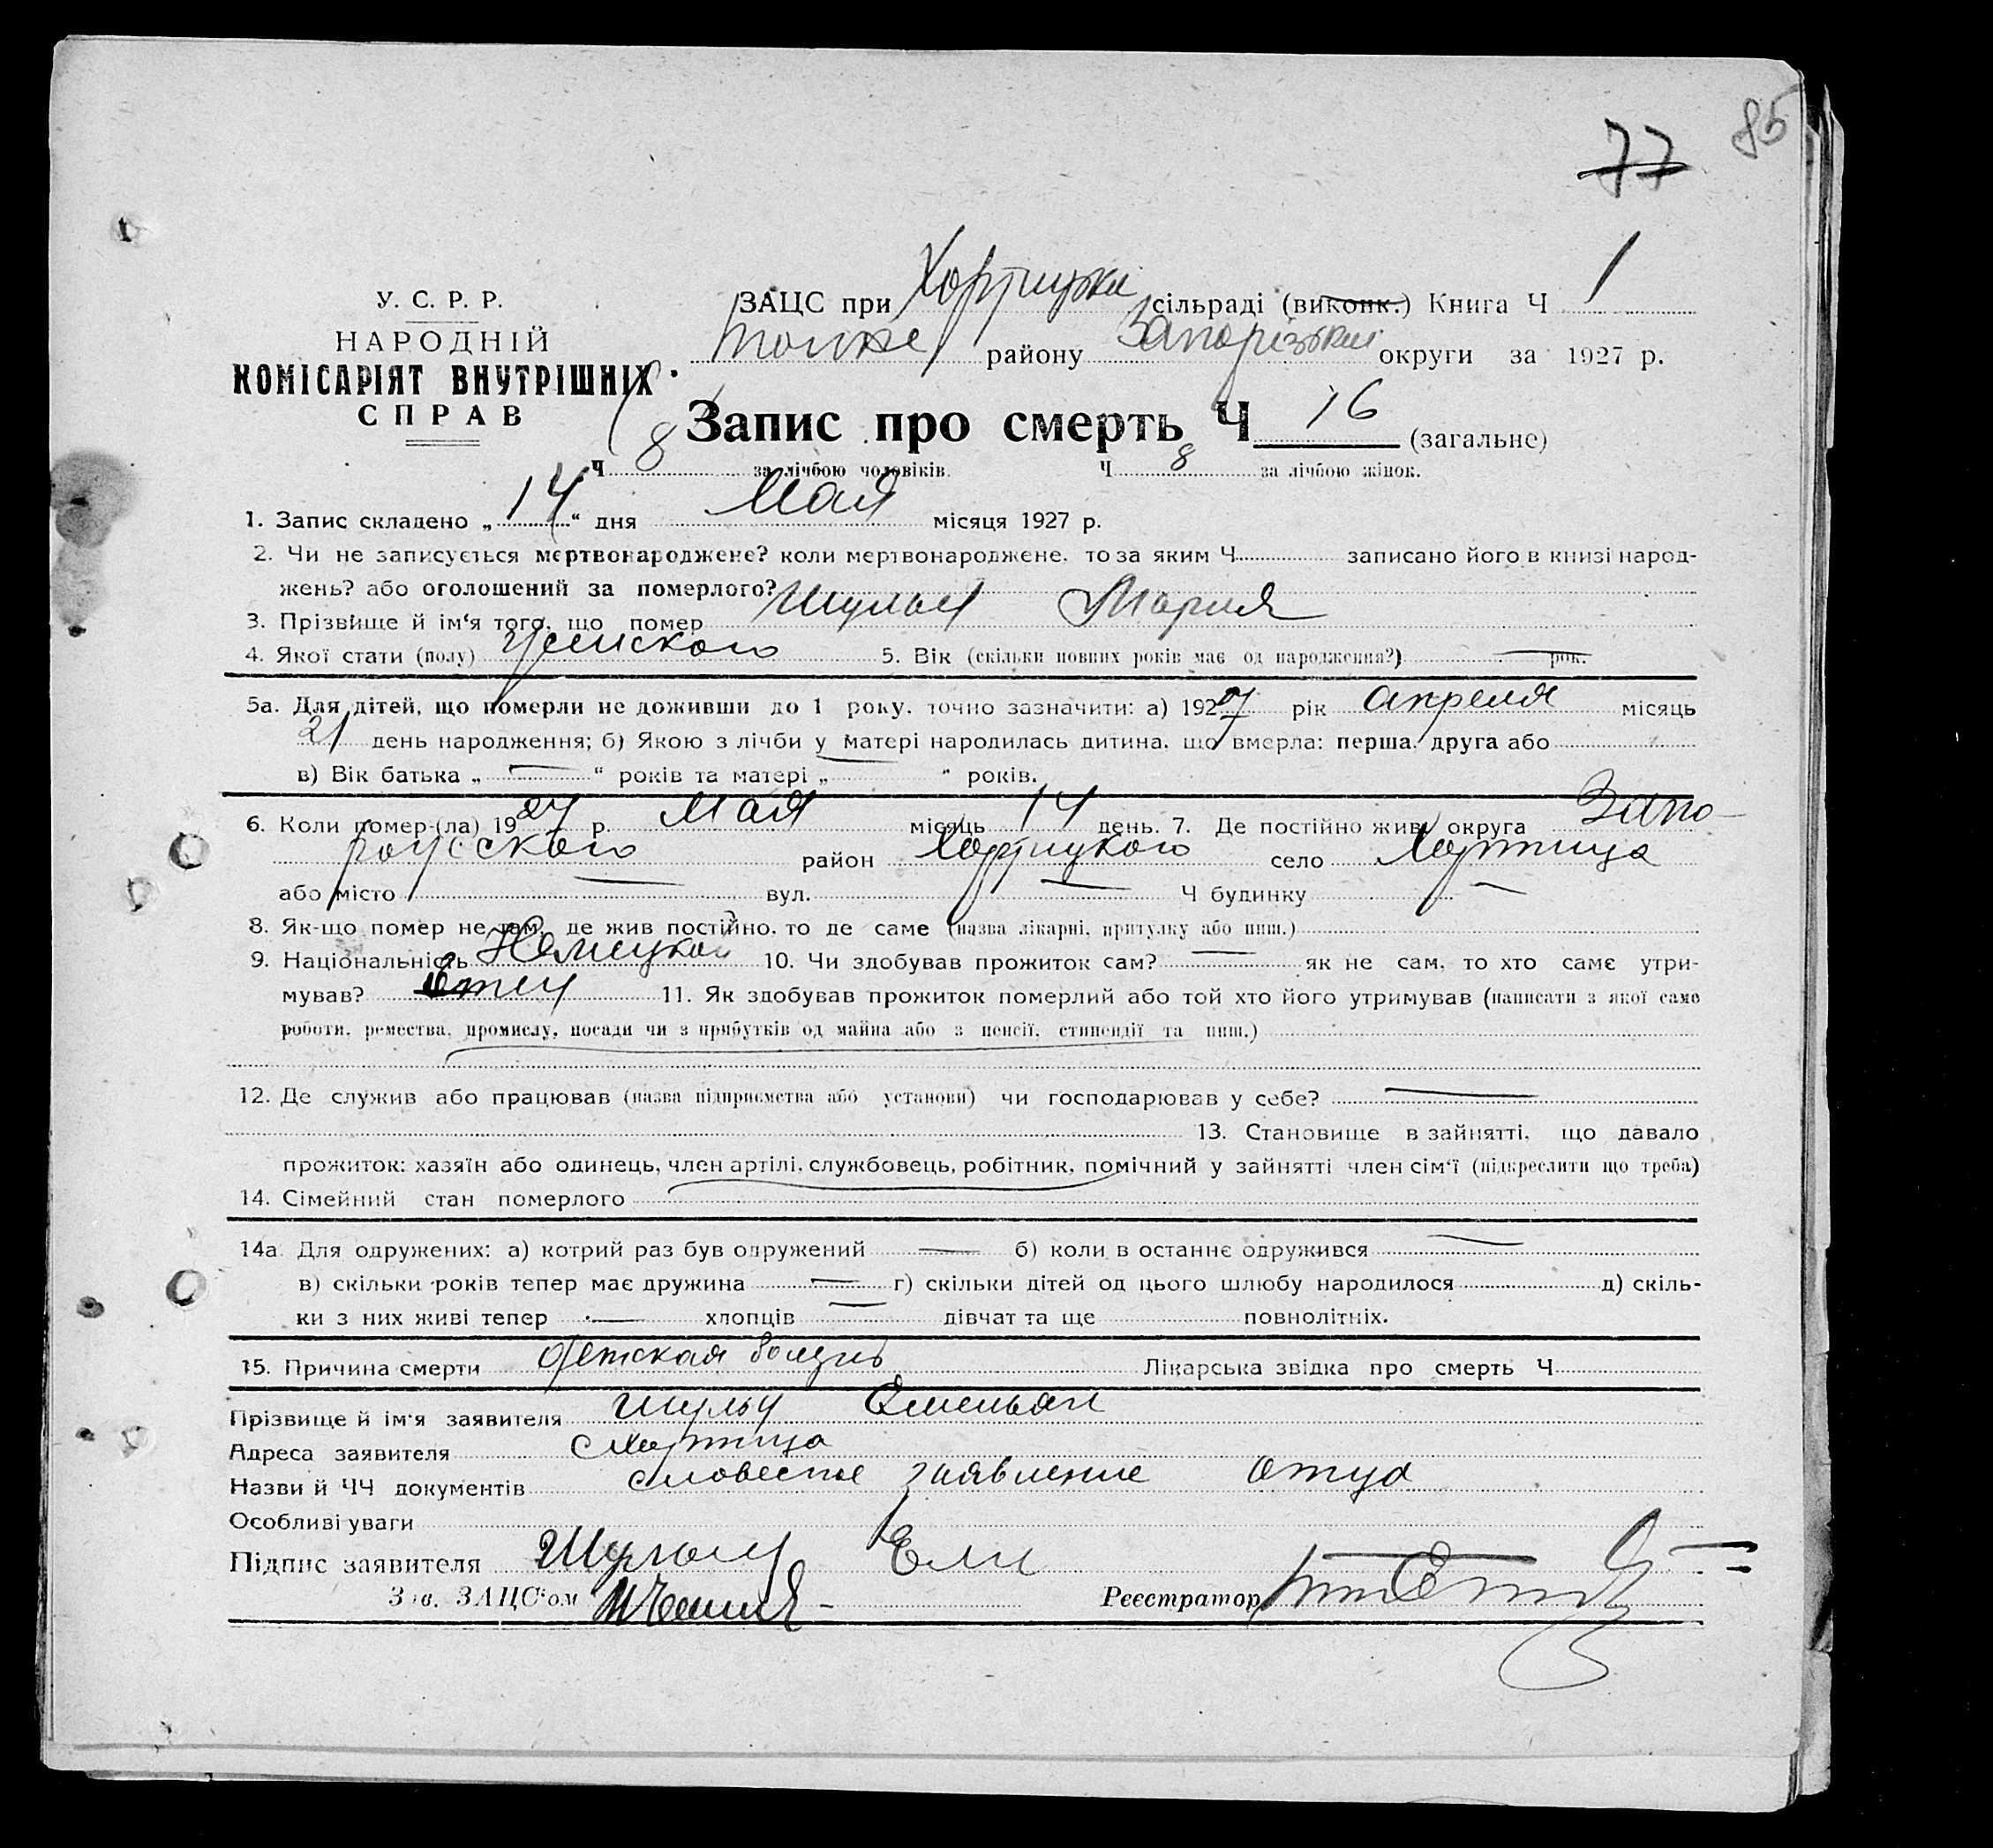 85
77
У. С. Р. Р.
НАРОДНІЙ
КОМІСАРІЯТ ВНУТРІШНІХ
СПРАВ
ЗАЦС при Хортицкі сільраді (виконк.) Книга Ч 1
району Запорізькии округи за 1927 р.
Запис про смерть Ч 16 (загальне)
Ч 8 за лічбою чоловіків. Ч 8 за лічбою жінок.
1. Запис складено „14“ дня Мая місяця 1927 р.
2. Чи не записується мертвонароджене? коли мертвонароджене, то за яким Ч записано його в книзі народ-
жень? або оголошений за померлого?
3. Прізвище й ім‘я того, що помер Шульц Мария
4. Якої стати (полу) женского 5. Вік (скільки повних років має од народження?) — рок.
5а. Для дітей, що померли не доживши до 1 року, точно зазначити: а) 1927 рік апреля місяць
21 день народження; б) Якою з лічби у матері народилась дитина, що вмерла: перша, друга або
в) Вік батька „ — “ років та матері „ “ років.
6. Коли помер-(ла) 1927 р. Мая місяць 14 день. 7. Де постійно жив округа Запо-
рожского район Хортицкого село Хортица
або місто — вул. — Ч будинку —
8. Як-що помер не там, де жив постійно, то де саме (назва лікарні, притулку або инш.)
9. Національність Немецкой 10. Чи здобував прожиток сам? — як не сам, то хто саме утри-
мував? Отец 11. Як здобував прожиток померлий або той хто його утримував (написати з якої саме
роботи, ремества, промислу, посади чи з прибутків од майна або з пенсії, стипендії та инш.)
12. Де служив або працював (назва підприємства або установи) чи господарював у себе? —
13. Становище в зайнятті, що давало
прожиток: хазяїн або одинець, член артілі, службовець, робітник, помічний у зайнятті член сім‘ї (підкреслити що треба)
14. Сімейний стан померлого
14а. Для одружених: а) котрий раз був одружений — б) коли в останнє одружився —
в) скільки років тепер має дружина — г) скільки дітей од цього шлюбу народилося д) скіль-
ки з них живі тепер — хлопців — дівчат та ще повнолітніх.
15. Причина смерти детская болезнь Лікарська звідка про смерть Ч
Прізвище й ім‘я заявителя Шульц Емельян
Адреса заявителя Хортица
Назви й ЧЧ документів словесное заявление отца
Особливі уваги
Підпис заявителя Шульц Еми
Зав. ЗАЦС‘ом
Реєстратор